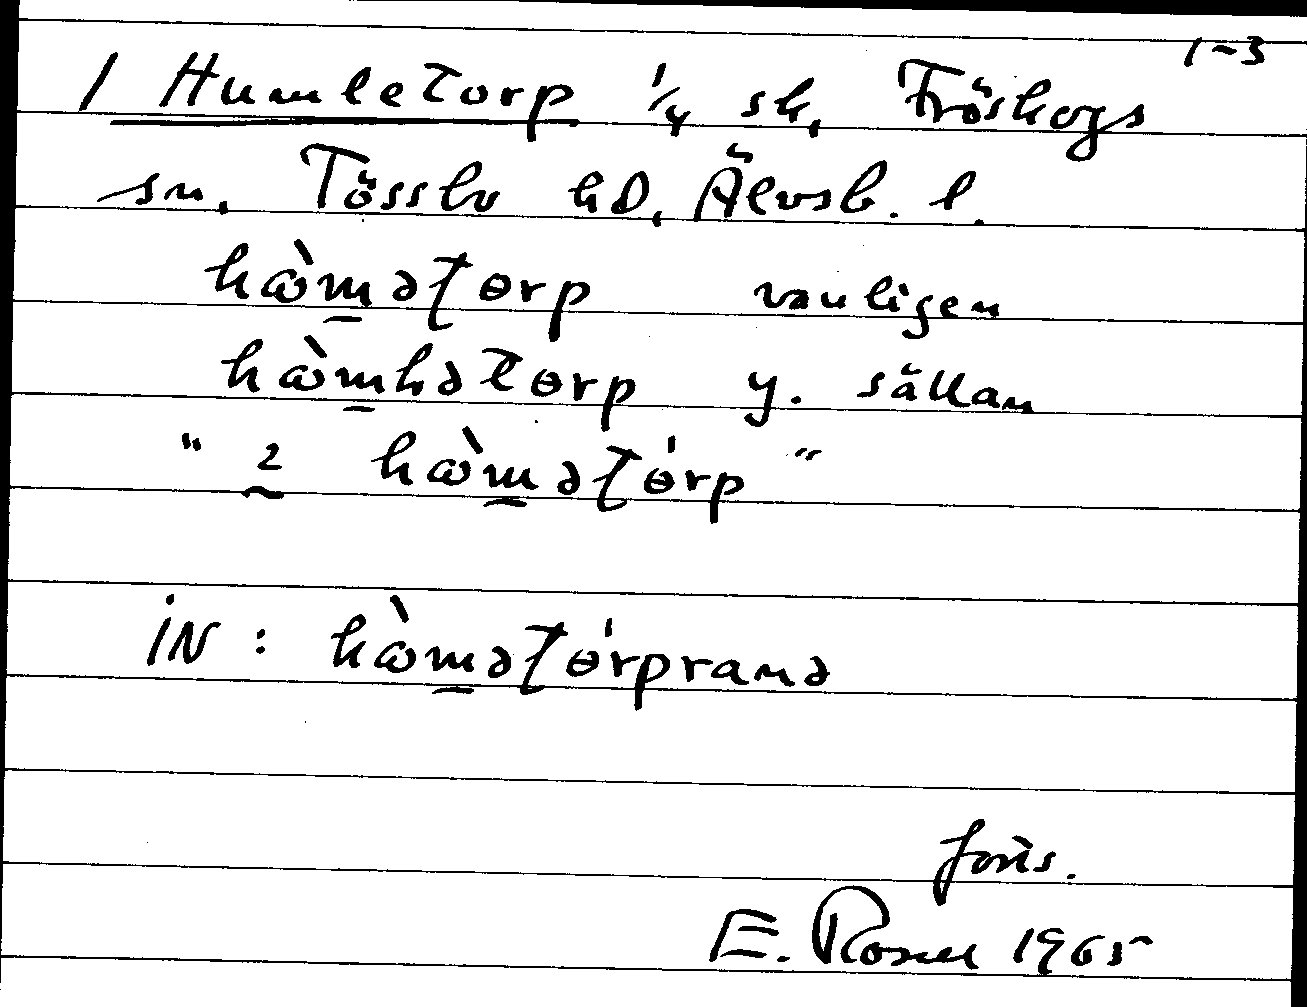 1-3
1 Humletorp 1/4 sk, Fröskogs
sn. Tössbo hd, Älvsb. l.
hɷ̀m̲ətɵrp vanligen
hɷ̀m̲hətɵrp y. sällan
" 2 hɷ̀m̲ətɵ́rp "
iN : hɷ̀m̲ətɵ́rprana
E. Rosell 1965